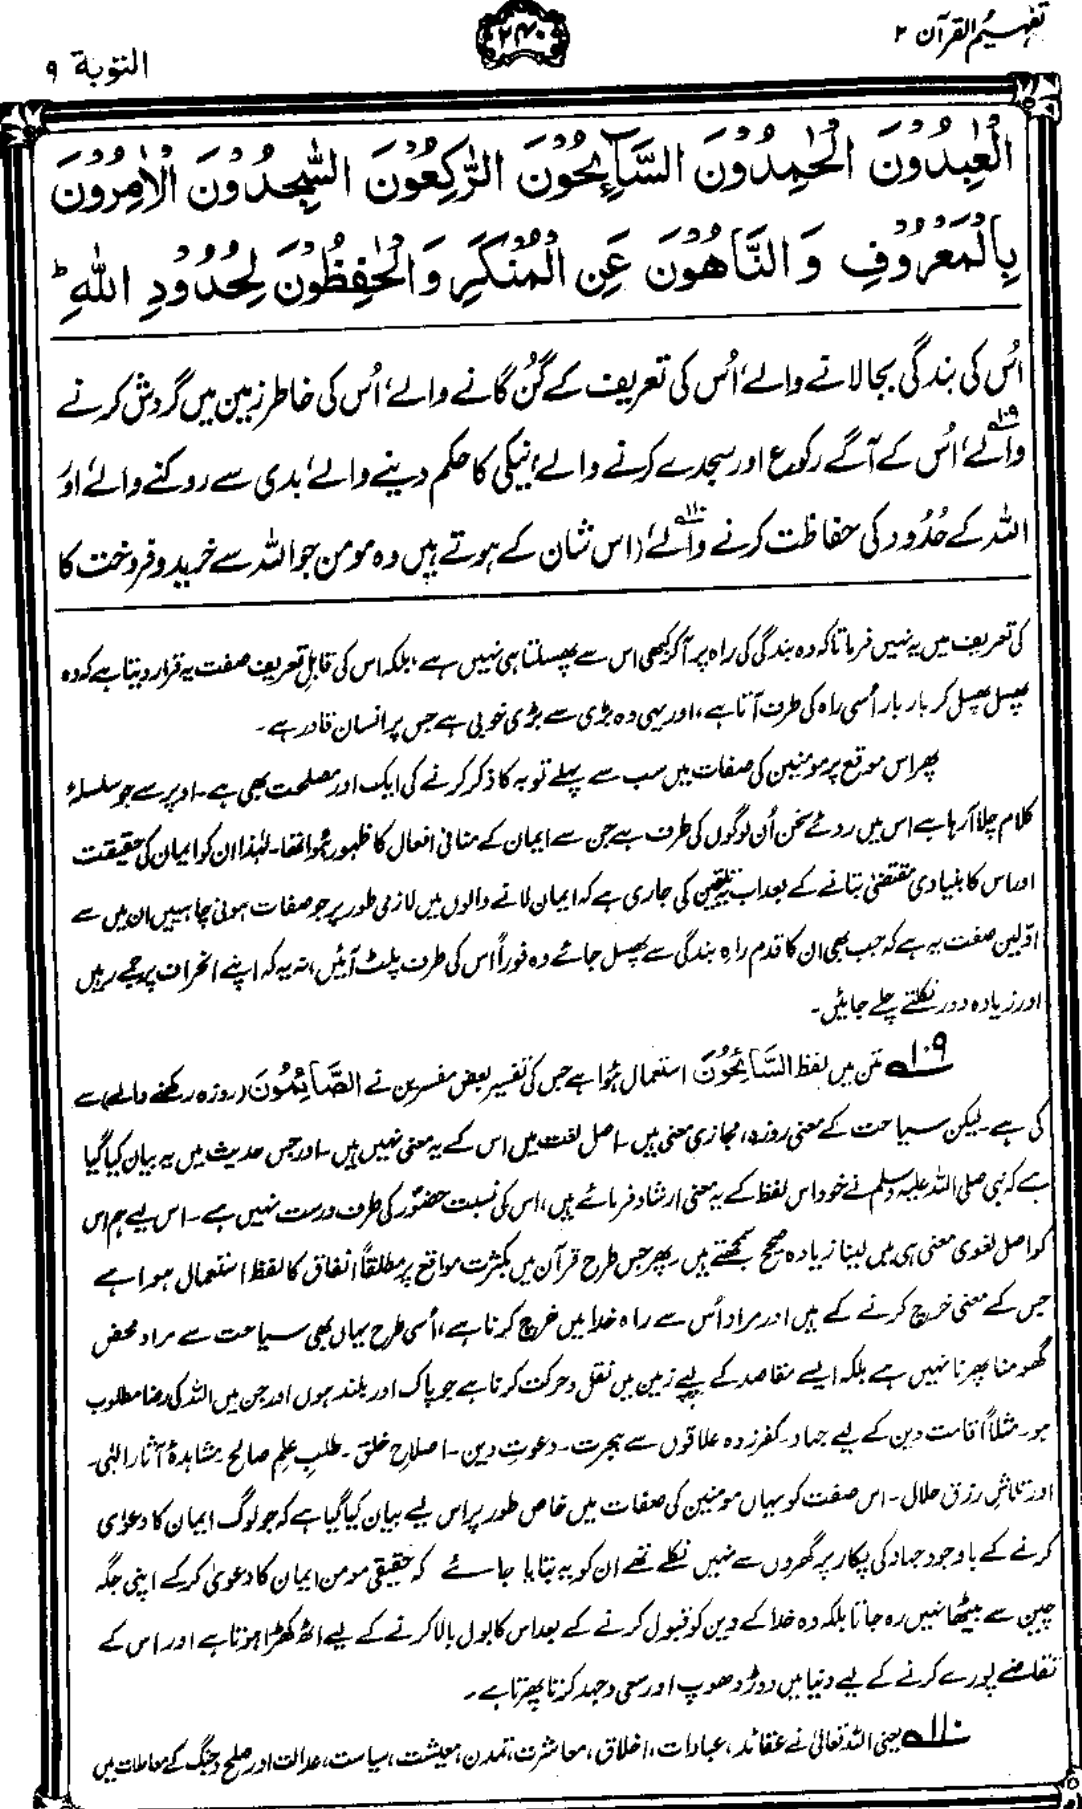 تفہیم القرآن ۲
۲۴۰
التوبة ۹
الْعٰبِدُوْنَ الْحٰمِدُوْنَ السَّآىِٕحُوْنَ الرّٰكِعُوْنَ السّٰجِدُوْنَ الْاٰمِرُوْنَ
بِالْمَعْرُوْفِ وَالنَّاهُوْنَ عَنِ الْمُنْكَرِ وَالْحٰفِظُوْنَ لِحُدُوْدِ اللّٰهِ ؕ
اُس کی بندگی بجا لانے والے، اُس کی تعریف کے گُن گانے والے، اُس کی خاطر زمین میں گردش کرنے
والے،۱۰۹ اُس کے آگے رکوع اور سجدے کرنے والے، نیکی کا حکم دینے والے، بدی سے روکنے والے، اور
اللہ کے حُدُود کی حفاظت کرنے والے،۱۱۰ (اس شان کے ہوتے ہیں وہ مومن جو اللہ سے خرید و فروخت کا
کی تعریف میں یہ نہیں فرماتا کہ وہ بندگی کی راہ پر آکر کبھی اس سے پھسلتا ہی نہیں ہے، بلکہ اس کی قابلِ تعریف صفت یہ قرار دیتا ہے کہ وہ
پھسل پھسل کر بار بار اُسی راہ کی طرف آتا ہے، اور یہی وہ بڑی سے بڑی خوبی ہے جس پر انسان قادر ہے۔
پھر اس موقع پر مومنین کی صفات میں سب سے پہلے توبہ کا ذکر کرنے کی ایک اور مصلحت بھی ہے۔ اوپر سے جو سلسلۂ
کلام چلا آرہا ہے اس میں روئے سخن اُن لوگوں کی طرف ہے جن سے ایمان کے منافی افعال کا ظہور ہُوا تھا۔ لہٰذا ان کو ایمان کی حقیقت
اور اس کا بنیادی مقتضیٰ بتانے کے بعد اب یہ تلقین کی جا رہی ہے کہ ایمان لانے والوں میں لازمی طور پر جو صفات ہونی چاہییں ان میں سے
اوّلین صفت یہ ہے کہ جب بھی ان کا قدم راہِ بندگی سے پھسل جائے وہ فوراً اس کی طرف پلٹ آئیں، نہ یہ کہ اپنے انحراف پر جمے رہیں
اور زیادہ دور نکلتے چلے جائیں۔
۱۰۹ متن میں لفظ السَّائِحُوْنَ استعمال ہُوا ہے جس کی تفسیر بعض مفسرین نے الصَّائِمُوْنَ (روزہ رکھنے والے) سے
کی ہے۔ لیکن سیاحت کے معنی روزہ، مجازی معنی ہیں۔ اصل لغت میں اس کے یہ معنی نہیں ہیں۔ اور جس حدیث میں یہ بیان کیا گیا
ہے کہ نبی صلی اللہ علیہ وسلم نے خود اس لفظ کے یہ معنی ارشاد فرمائے ہیں، اس کی نسبت حضورؐ کی طرف درست نہیں ہے۔ اس لیے ہم اس
کو اصل لغوی معنی ہی میں لینا زیادہ صحیح سمجھتے ہیں۔ پھر جس طرح قرآن میں بکثرت مواقع پر مطلقاً انفاق کا لفظ استعمال ہوا ہے
جس کے معنی خرچ کرنے کے ہیں اور مراد اُس سے راہ خدا میں خرچ کرنا ہے، اُسی طرح یہاں بھی سیاحت سے مراد محض
گھومنا پھرنا نہیں ہے بلکہ ایسے مقاصد کے لیے زمین میں نقل و حرکت کرنا ہے جو پاک اور بلند ہوں اور جن میں اللہ کی رضا مطلوب
ہو۔ مثلاً اقامت دین کے لیے جہاد۔ کفر زدہ علاقوں سے ہجرت۔ دعوتِ دین۔ اصلاحِ خلق۔ طلبِ علمِ صالح۔ مشاہدۂ آثارِ الٰہی۔
اور تلاشِ رزق حلال۔ اس صفت کو یہاں مومنین کی صفات میں خاص طور پر اس لیے بیان کیا گیا ہے کہ جو لوگ ایمان کا دعویٰ
کرنے کے باوجود جہاد کی پکار پر گھروں سے نہیں نکلے تھے ان کو یہ بتایا جائے کہ حقیقی مومن ایمان کا دعویٰ کرکے اپنی جگہ
چین سے بیٹھا نہیں رہ جاتا بلکہ وہ خدا کے دین کو قبول کرنے کے بعد اس کا بول بالا کرنے کے لیے اٹھ کھڑا ہوتا ہے اور اس کے
تقاضے پورے کرنے کے لیے دنیا میں دوڑ دھوپ اور سعی و جہد کرتا پھرتا ہے۔
۱۱۰ یعنی اللہ تعالیٰ نے عقائد، عبادات، اخلاق، معاشرت، تمدن، معیشت، سیاست، عدالت اور صلح و جنگ کے معاملات میں